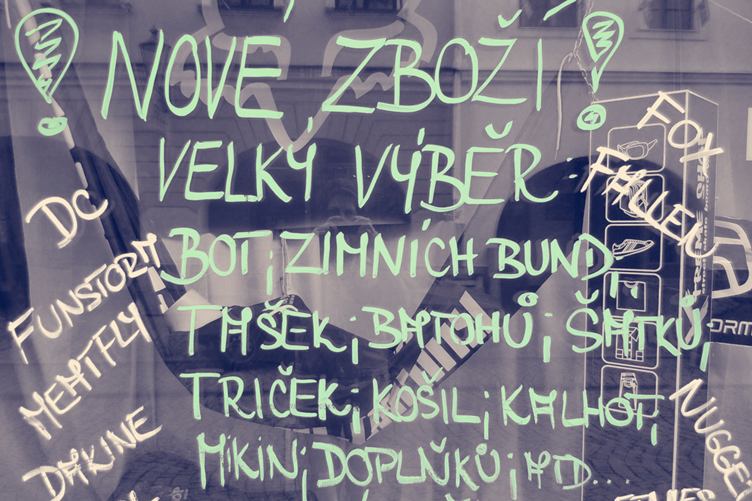 ! NOVÉ ZBOŽÍ !
VELKÝ VÝBĚR:
BOT, ZIMNÍCH BUND,
TAŠEK, BATOHŮ, ŠÁTKŮ,
TRIČEK, KOŠIL, KALHOT,
MIKIN, DOPLŇKŮ, ATD...
DC
FUNSTORM
MEATFLY
DAKINE
FOX
FALLEN
NUGGE